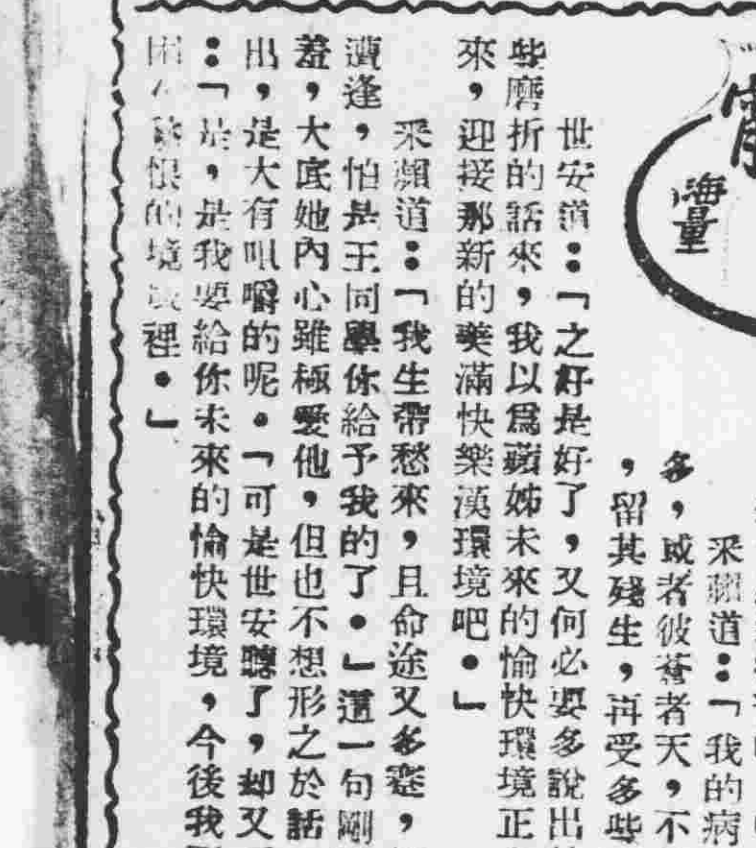 海量
采蘋道：「我的病
多，或者彼蒼者天，不
，留其殘生，再受多些
世安道：「之好是好了，又何必要多說出
些磨折的話來，我以爲蘋姊未來的愉快環境正
來，迎接那新的美滿快樂漢環境吧。」
采蘋道：「我生帶愁來，且命途又多蹇，
遭逢，怕是王同學你給予我的了。」這一句剛
羞，大底她內心雖極愛他，但也不想形之於話
出，是大有咀嚼的呢。「可是世安聽了，却又
：「是，是我要給你未來的愉快環境，今後我
恨的境裡。」